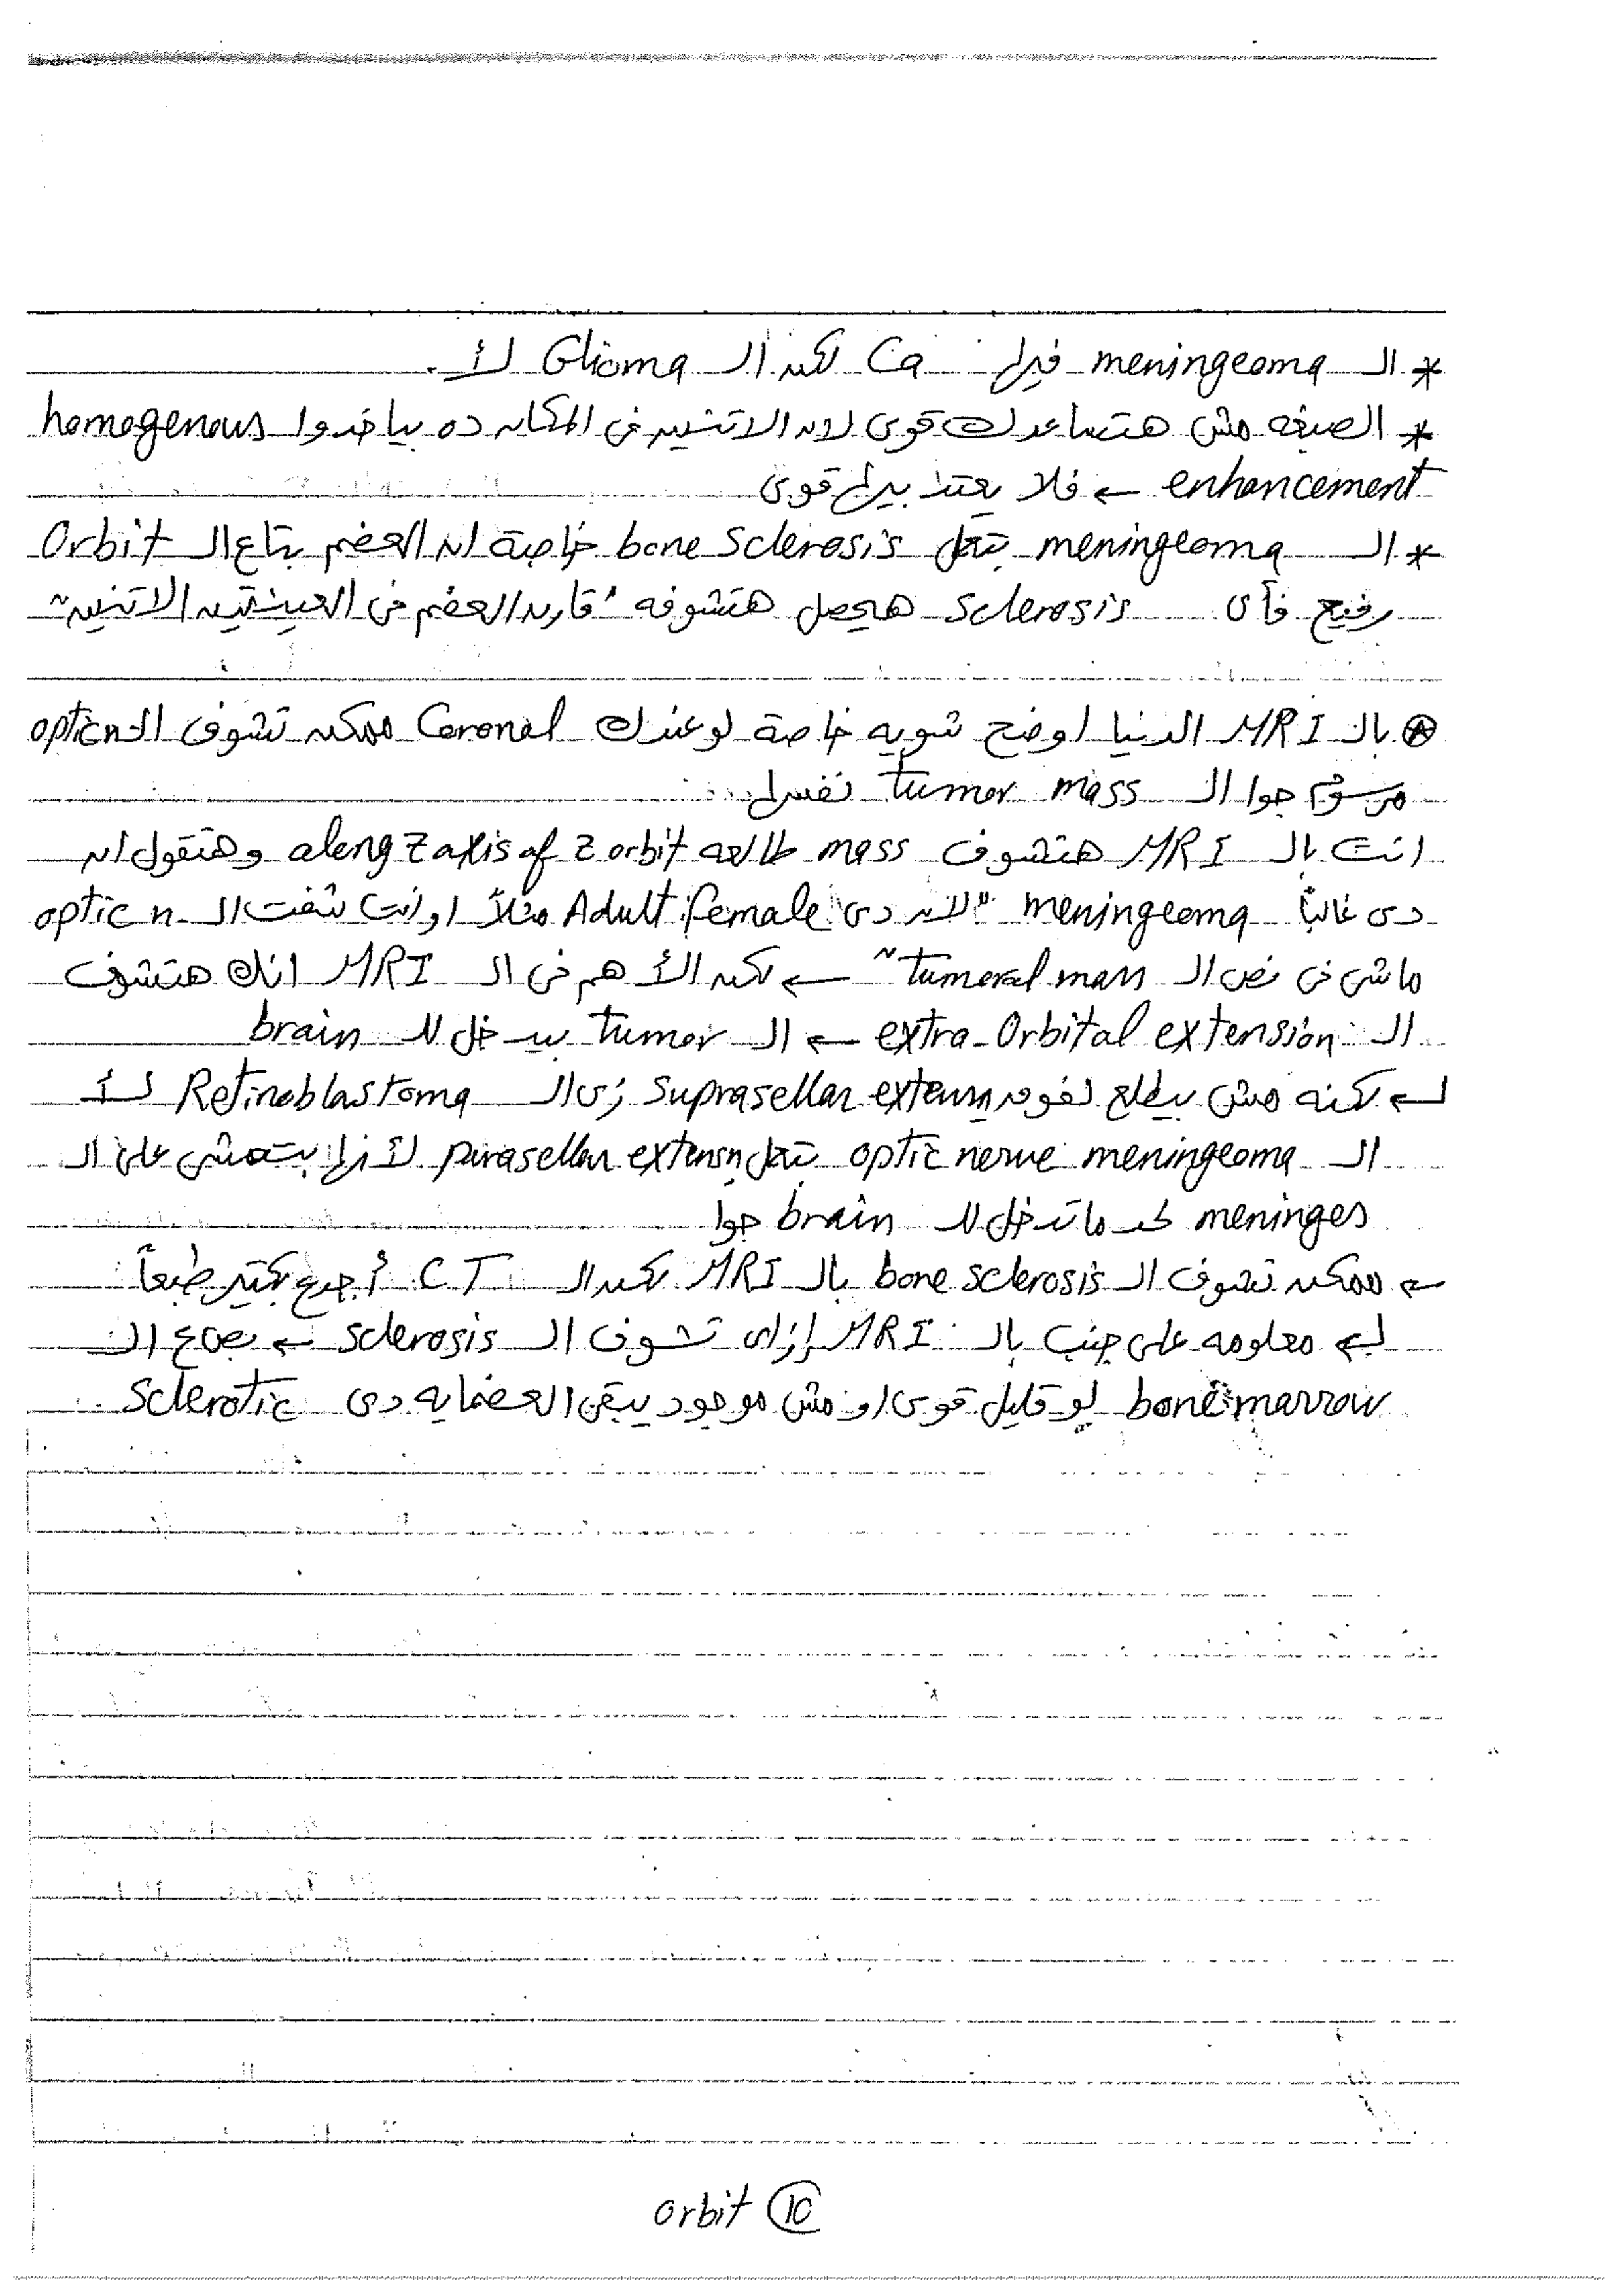 * الـ meningeoma فيها Ca لكن الـ Glioma لأ .
* الصبغه مش هتساعدك قوى لان الاتنين فى المكان ده بياخدوا homogenous
enhancement ← فلا يعتد بيها قوى
* الـ meningeoma بتعمل bone Sclerosis خاصة ان العضم بتاع الـ Orbit
رفيع فأى Sclerosis هيحصل هتشوفه "قارن العضم فى العينتين الاتنين"
⊛ بالـ MRI الدنيا اوضح شويه خاصة لو عندك Coronal ممكن تشوف الـ optic n
مرسوم جوا الـ tumor mass نفسها
انت بالـ MRI هتشوف mass طالعه along z axis of z orbit وهتقول ان
دى غالباً meningeoma "لان دى Adult female مثلاً او انت شفت الـ optic n
ماشى فى نص الـ tumoral mass" ← لكن الأهم فى الـ MRI انك هتشوف
الـ extra-Orbital extension ← الـ tumor بيدخل للـ brain
↳ لكنه مش بيطلع لفوق Suprasellar extensn زى الـ Retinoblastoma لأ
الـ optic nerve meningeoma بتعمل parasellar extensn لأنها بتمشى على الـ
meninges لحد ما تدخل للـ brain جوا
← ممكن تشوف الـ bone sclerosis بالـ MRI لكن الـ CT أجدع بكتير طبعاً
↳ معلومه على جنب بالـ MRI إزاى تشوف الـ sclerosis ← بص ع الـ
bone marrow لو قليل قوى او مش موجود يبقى العضمايه دى Sclerotic
orbit ⑩